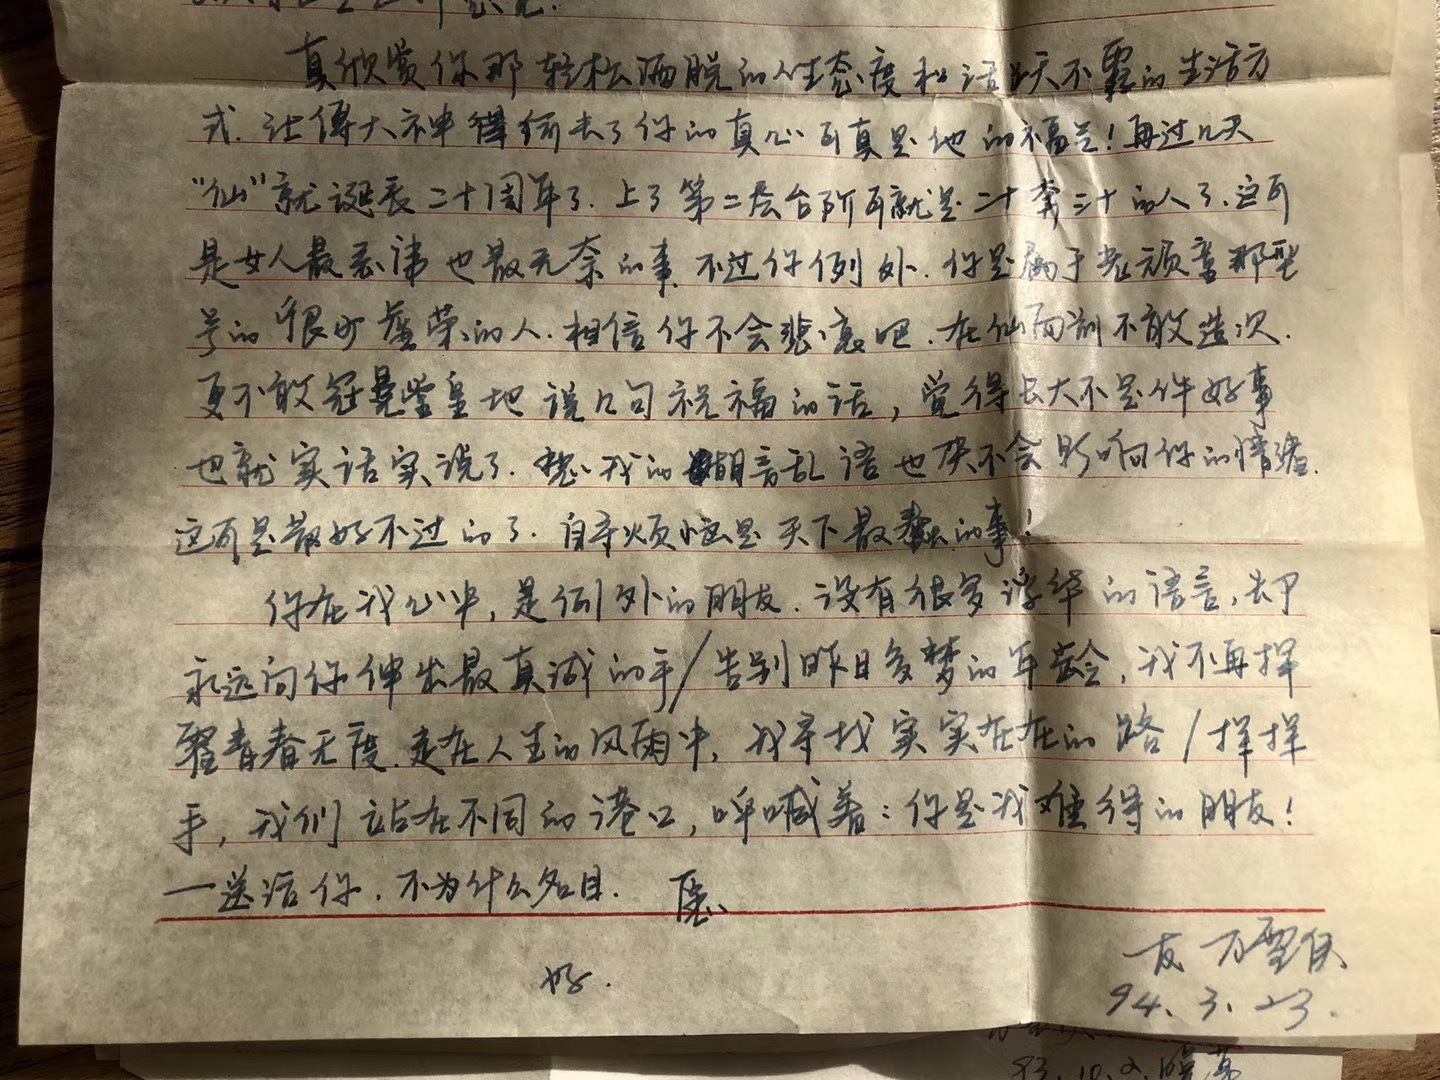 真欣赏你那轻松洒脱的人生态度和活天不露的生活方
式.让傅大神得何去了你的真心可真是他的福星!再过几天
"仙"就诞辰二十周年了.上了第二层台阶可就是二十奔三十的人了.这可
是女人最忌讳也最无奈的事.不过你例外.你是属于老顽童那型
号的很少虚荣的人.相信你不会悲哀吧.在仙面前不敢造次.
更不敢冠冕堂皇地说几句祝福的话,觉得长大不是件好事
也就实话实说了.想我的胡言乱语也决不会影响你的情绪.
这可是最好不过的了.自寻烦恼是天下最蠢的事!
你在我心中,是例外的朋友.没有很多浮华的语言,却
永远向你伸出最真诚的手/告别昨日多梦的年龄,我不再挥
霍青春无度.走在人生的风雨中,我寻找实实在在的路/挥挥
手,我们站在不同的港口,呼喊着:你是我难得的朋友!
一送给你.不为什么名目.愿
好.
友 万雪
94.3.23.
93.10.2.